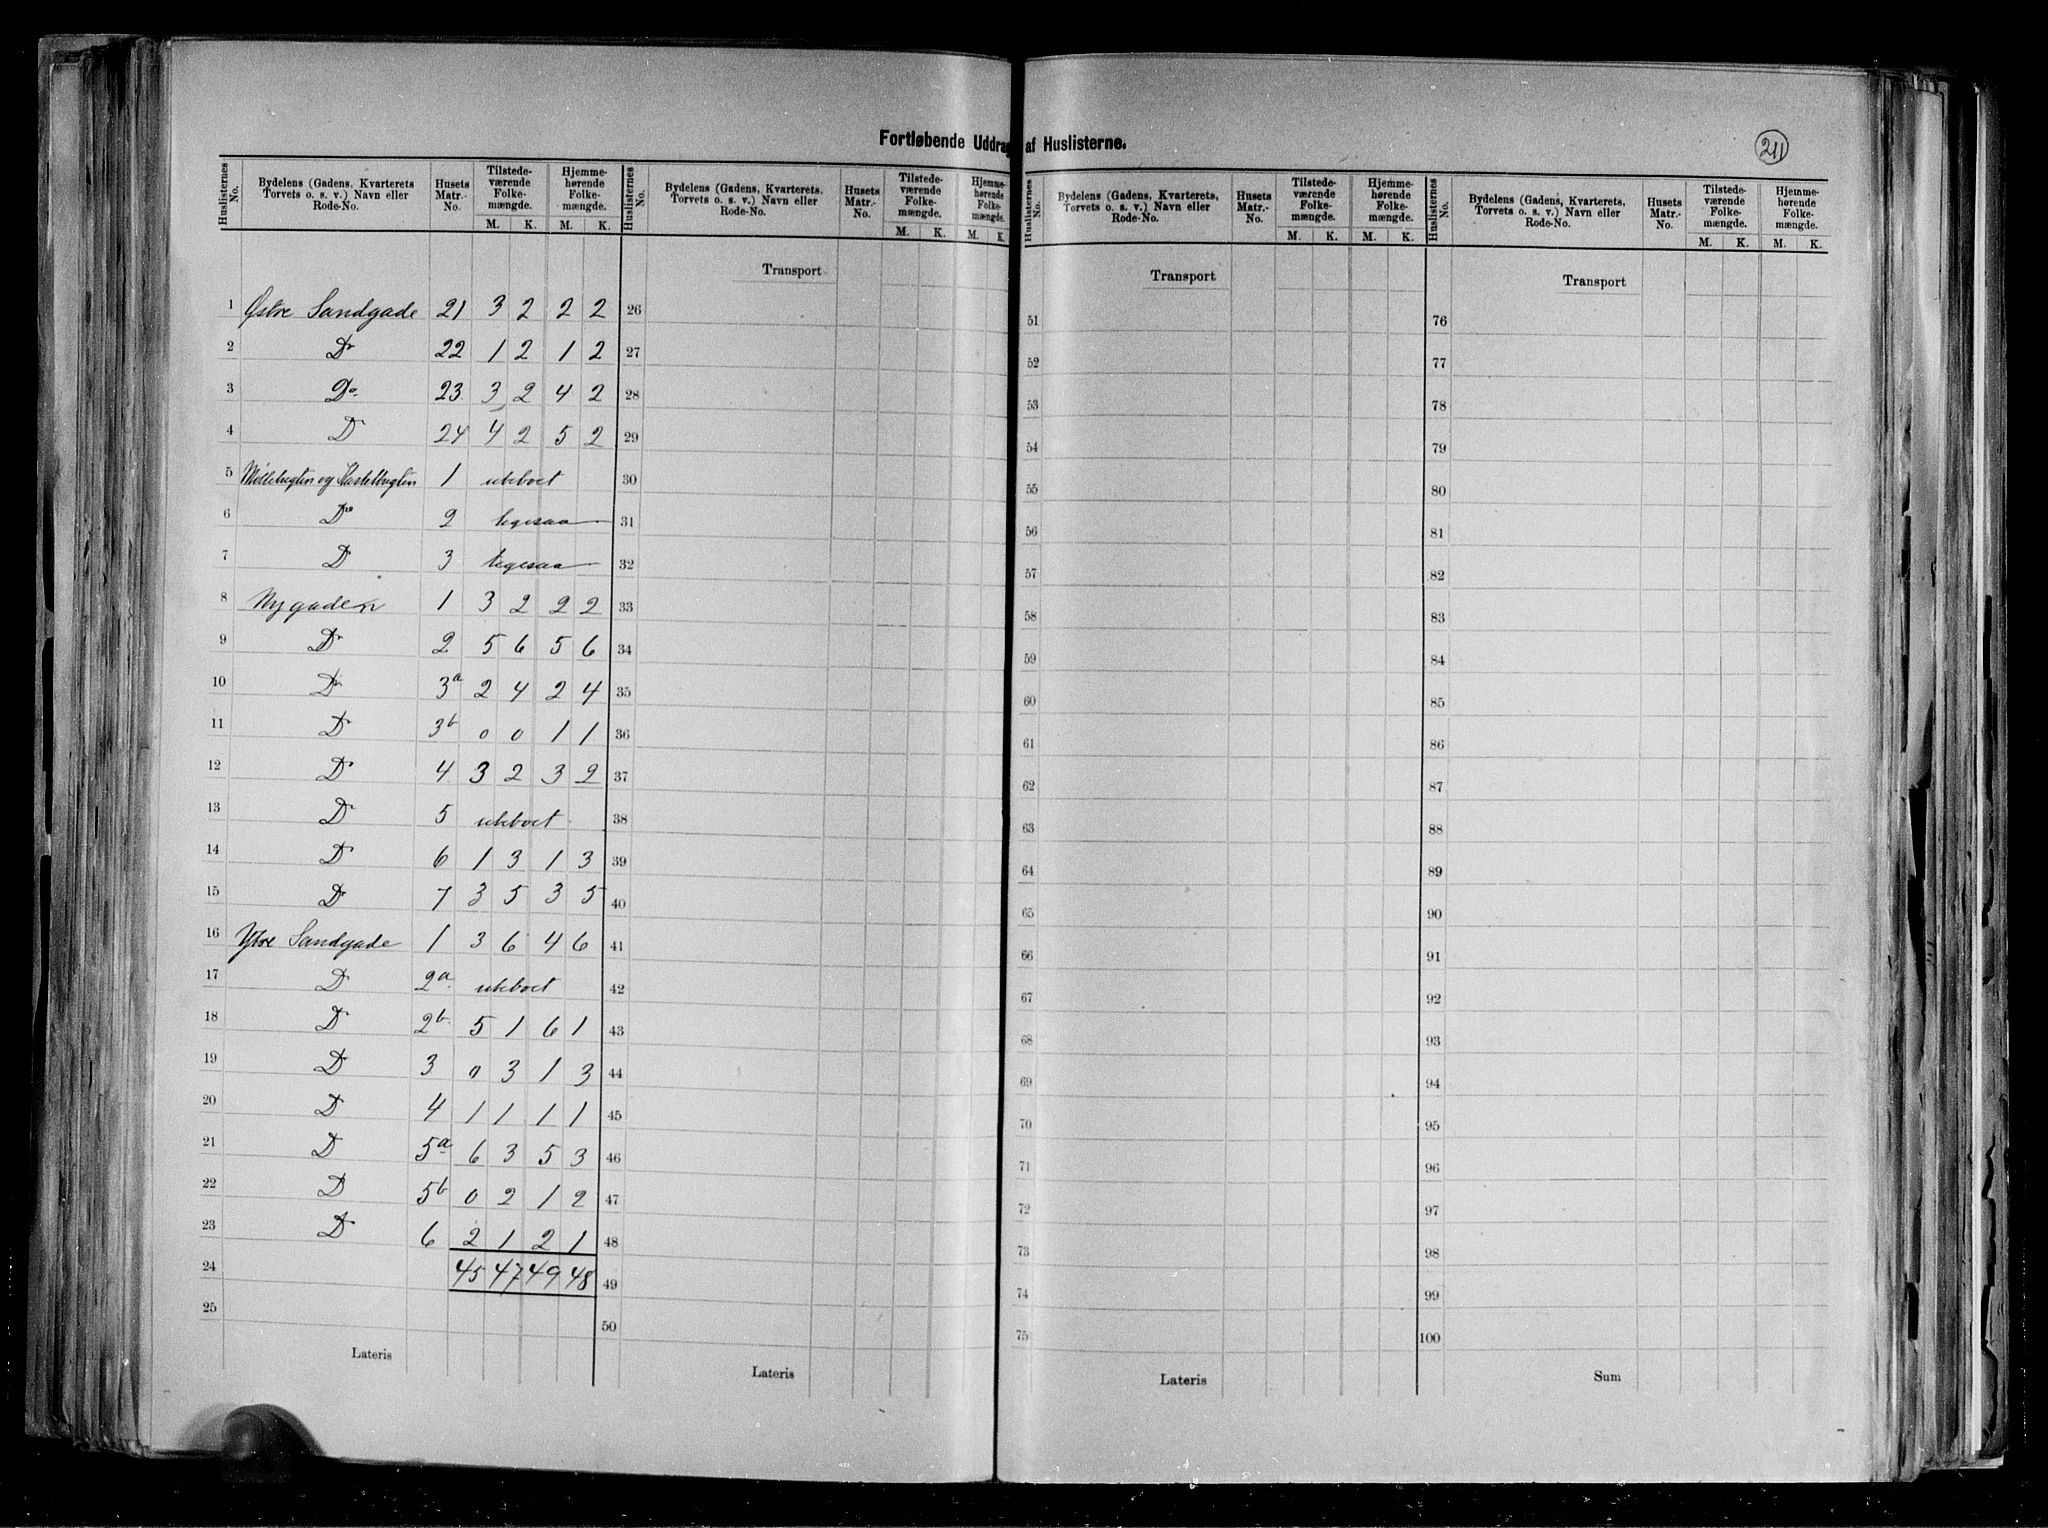 Fortløbende Uddrag af Huslisterne.
211
Huslisternes No. Bydelens (Gadens, Kvarterets Torvets o. s. v.) Navn eller Rode-No. Husets Matr.-No. Tilstede-værende Folke-mængde. M. K. Hjemme-hørende Folke-mængde. M. K.
Huslisternes No. Bydelens (Gadens, Kvarterets, Torvets o. s. v.) Navn eller Rode-No. Husets Matr.-No. Tilstede-værende Folke-mængde. M. K. Hjemme-hørende Folke-mængde. M. K.
Huslisternes No. Bydelens (Gadens, Kvarterets, Torvets o. s. v.) Navn eller Rode-No. Husets Matr.-No. Tilstede-værende Folke-mængde. M. K. Hjemme-hørende Folke-mængde. M. K.
Huslisternes No. Bydelens (Gadens, Kvarterets, Torvets o. s. v.) Navn eller Rode-No. Husets Matr.-No. Tilstede-værende Folke-mængde. M. K. Hjemme-hørende Folke-mængde. M. K.
Transport Transport Transport
1 Østre Sandgade 21 3 2 2 2 26 51 76
2 Do 22 1 2 1 2 27 52 77
3 Do 23 3 2 4 2 28 53 78
4 D 24 4 2 5 2 29 54 79
5 Møllebugten og Kastelbugten 1 ubeboet 30 55 80
6 Do 2 ligesaa 31 56 81
7 D 3 ligesaa 32 57 82
8 Nygaden 1 3 2 2 2 33 58 83
9 D 2 5 6 5 6 34 59 84
10 D 3a 2 4 2 4 35 60 85
11 D 3b 0 0 1 1 36 61 86
12 D 4 3 2 3 2 37 62 87
13 D 5 ubeboet 38 63 88
14 D 6 1 3 1 3 39 64 89
15 D 7 3 5 3 5 40 65 90
16 Ytre Sandgade 1 3 6 4 6 41 66 91
17 D 2a ubeboet 42 67 92
18 D 2b 5 1 6 1 43 68 93
19 D 3 0 3 1 3 44 69 94
20 D 4 1 1 1 1 45 70 95
21 D 5a 6 3 5 3 46 71 96
22 D 5b 0 2 1 2 47 72 97
23 D 6 2 1 2 1 48 73 98
24 45 47 49 48 49 74 99
25 50 75 100
Lateris Lateris Lateris Sum